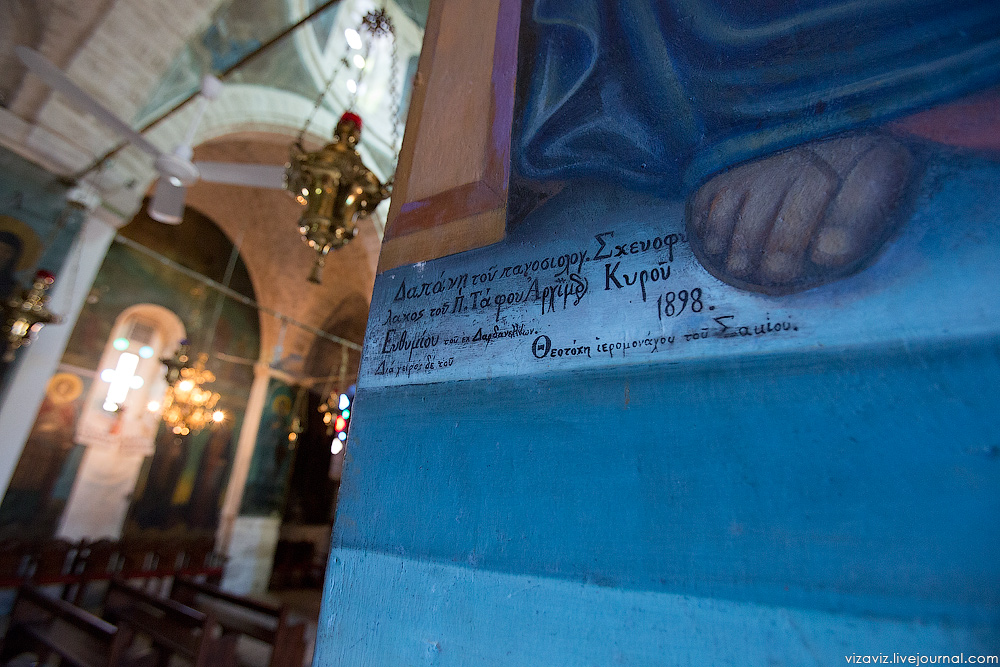 Δαπάνῃ τοῦ παγοσιολογ. Σχευοφυ
λακος τοῦ Π. Τάφου Ἀρχιμδ Κυροῦ
Εὐθυμίου τοῦ εκ Δαρδανελλίων. 1898.
Διὰ χειρος δὲ τοῦ Θεοτόκη ἱερομονάχου τοῦ Σαμίου.
vizaviz.livejournal.com